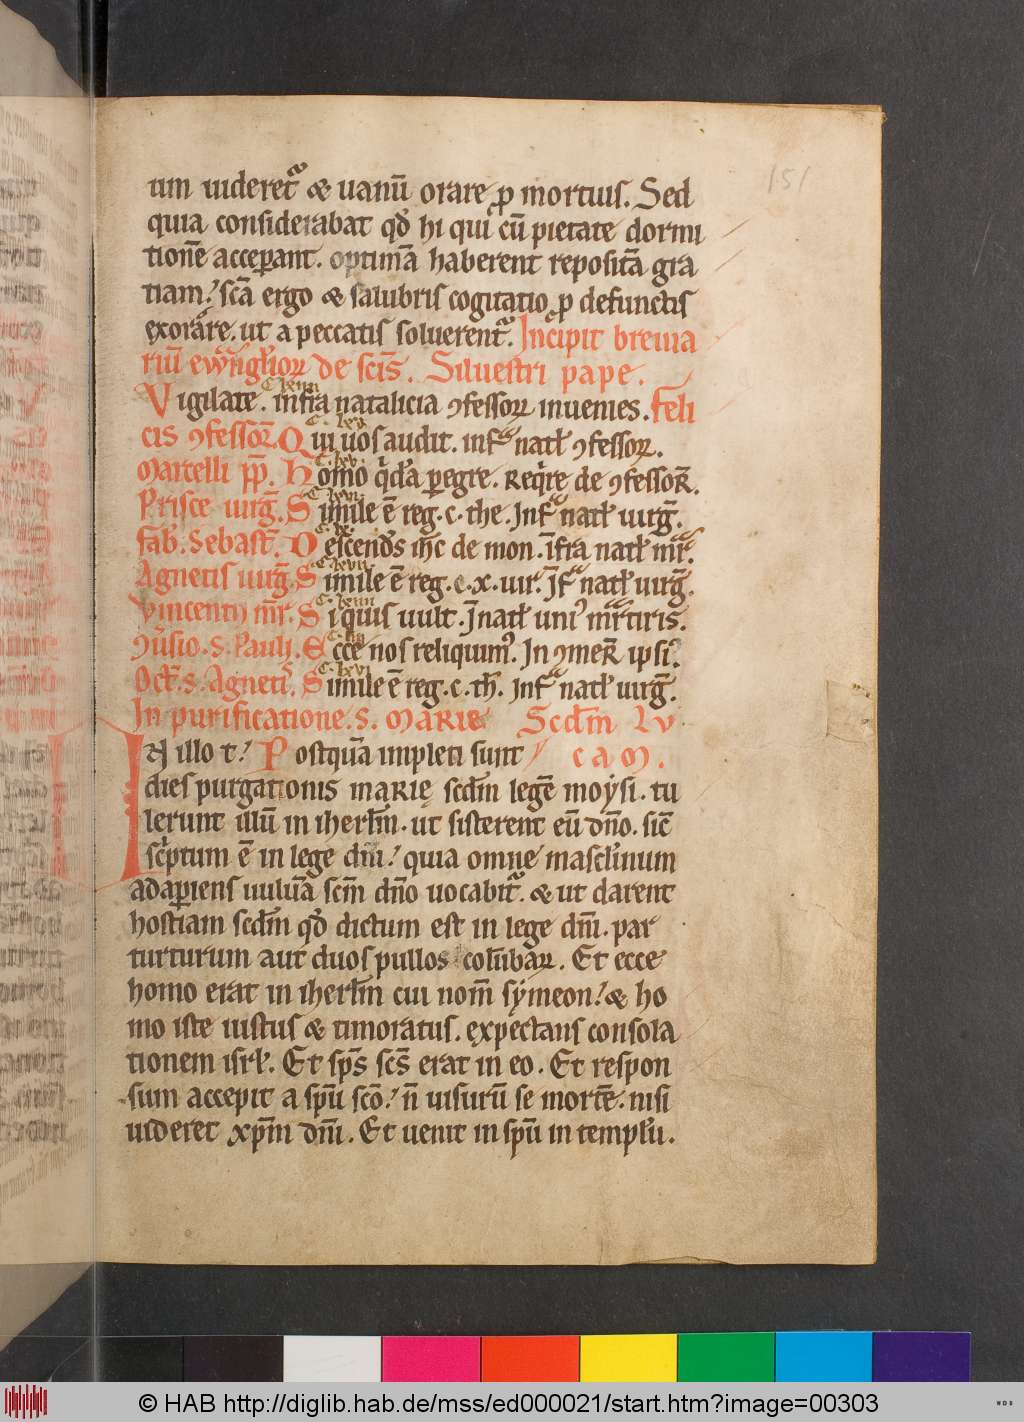 151
um uideret᷑ & uanū orare ꝓ mortuis. Sed
quia considerabat qđ hi qui cū pietate dormi
tionē acceꝑant. optimā haberent repositā gra
tiam! scā ergo & salubris cogitatio ꝓ defunctis
exorare. ut a peccatis soluerent᷑. Incipit breuia
riū ewꝫ̄glioꝝ de scīs. Siluestri pape.
Vigilate. infra natalicia ꝯfessoꝝ inuenies. Feli
cis ꝯfessoꝝ. Qui uos audit. infᵃ natł ꝯfessoꝝ.
Marcelli pp̄. Homo qⁱdā ꝑegre. Reqⁱre de ꝯfessoꝝ.
Prisce uirḡ. Simile ē reg. c. the. Infᵃ natł uirḡ.
Fab. Sebast̄. Descendēs ihc de mon. īfra natł mr̄.
Agnetis uirḡ. Simile ē reg. c. x. uir. Īfᵃ natł uirḡ.
Vincentij mr̄. Si quis uult. Īnatł uniꝰ mr̄tiris.
ꝯu̾sio. s. Pauli. Ecce nos reliquimꝰ. In ꝯmem̄ ipsiꝰ.
Oct̄. s. Agneti. Simile ē reg. c. th̄. infᵃ natł uirḡ.
In purificatione. s. Marie Scdm̄ Lu
In illo t! Postquā impleti sunt cam.
dies purgationis marie scdm̄ legē moysi. tu
lerunt illū in iherłm. ut sisterent eū dn̄o. sic̄
scⁱptum ē in lege dn̄i! quia omne mascłinum
adaꝑiens uuluā scm̄ dn̄o uocabit᷑. & ut darent
hostiam scdm̄ qđ dictum est in lege dn̄i. par
turturum aut duos pullos colūbaꝝ. Et ecce
homo erat in iherłm cui nom̄ symeon! & ho
mo iste iustus & timoratus. expectans consola
tionem isrł. Et sp̄s sc̄s erat in eo. Et respon
sum accepit a sp̄u sc̄o! n̄ uisurū se mortē. nisi
uideret xp̄m dn̄i. Et uenit in sp̄u in templū.
© HAB http://diglib.hab.de/mss/ed000021/start.htm?image=00303